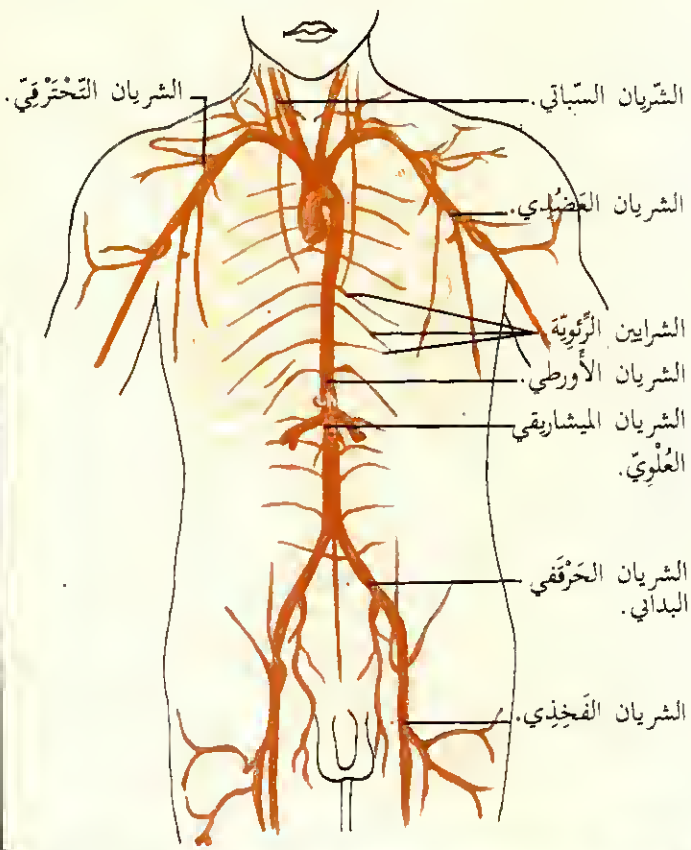 الشّريان السّباتي.
الشريان التَّحْتَرْقِيّ.
الشريان العَضُدِي.
الشرايين الرِّئَوِيَّة
الشريان الأَورطي.
الشريان الميشاريقي
العُلْوِيّ.
الشريان الحَرْقَفي
البدائي.
الشريان الفَخِذِي.